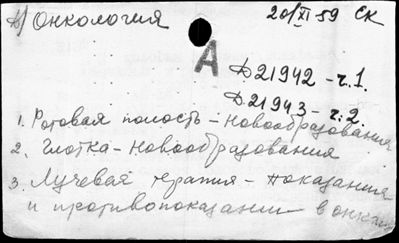 в) Онкология 20/XI 59 СК
А
Д21942 - ч.1.
Д21943 - ч.2.
1. Ротовая полость - Новообразования
2. Глотка - Новообразования
3. Лучевая терапия - показания
и противопоказании в онк